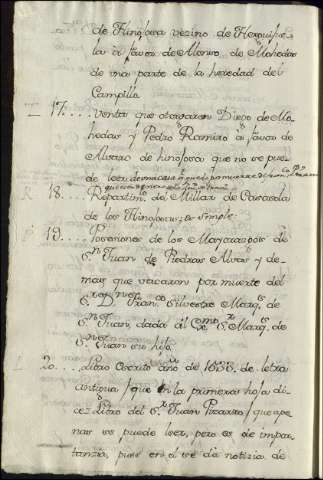 de Hinojosa vezino de Herguijue
la à favor de Alonso de Mahedas
de una parte de la heredad del
Campillo
17.... Venta que otorgaron Diego de Ma
hedas y Pedro Ramiro à favor de
Alvaro de hinojosa que no se pue-
de leer
18.... Repartim.to del Millar de Carrasolas
de los Hinojosas: es simple
19.... Posesiones de los Mayorazgos de
S.n Juan de Piedras Alvas y de-
mas que vacaron por muerte del
S.r D. Fran.co Silvestre Marq.s de
S.n Juan, dada al Exc.mo S.r Marq.s de
S.n Juan su hijo
20.... Libro escrito año de 1636. de letra
antigua / que en la primera hoja di-
ce: Libro del S.r Juan Pizarro / que ape-
nas se puede leer, pero es de impor-
tancia, pues en el se da noticia de